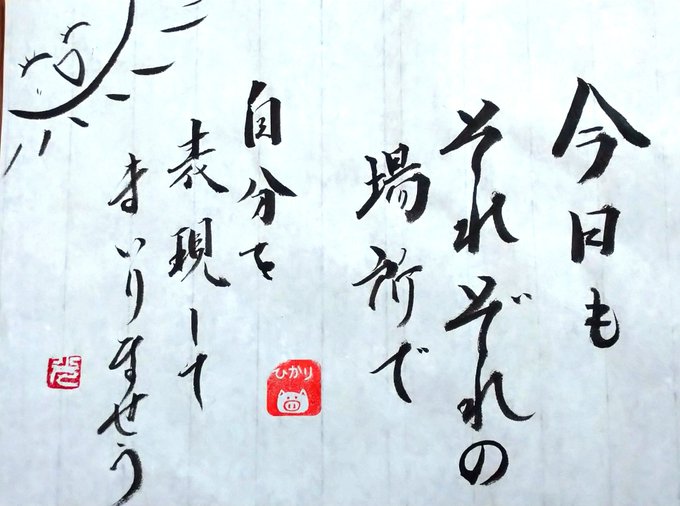 今日も
それぞれの
場所で
自分を
表現して
まいりませう
ひかり